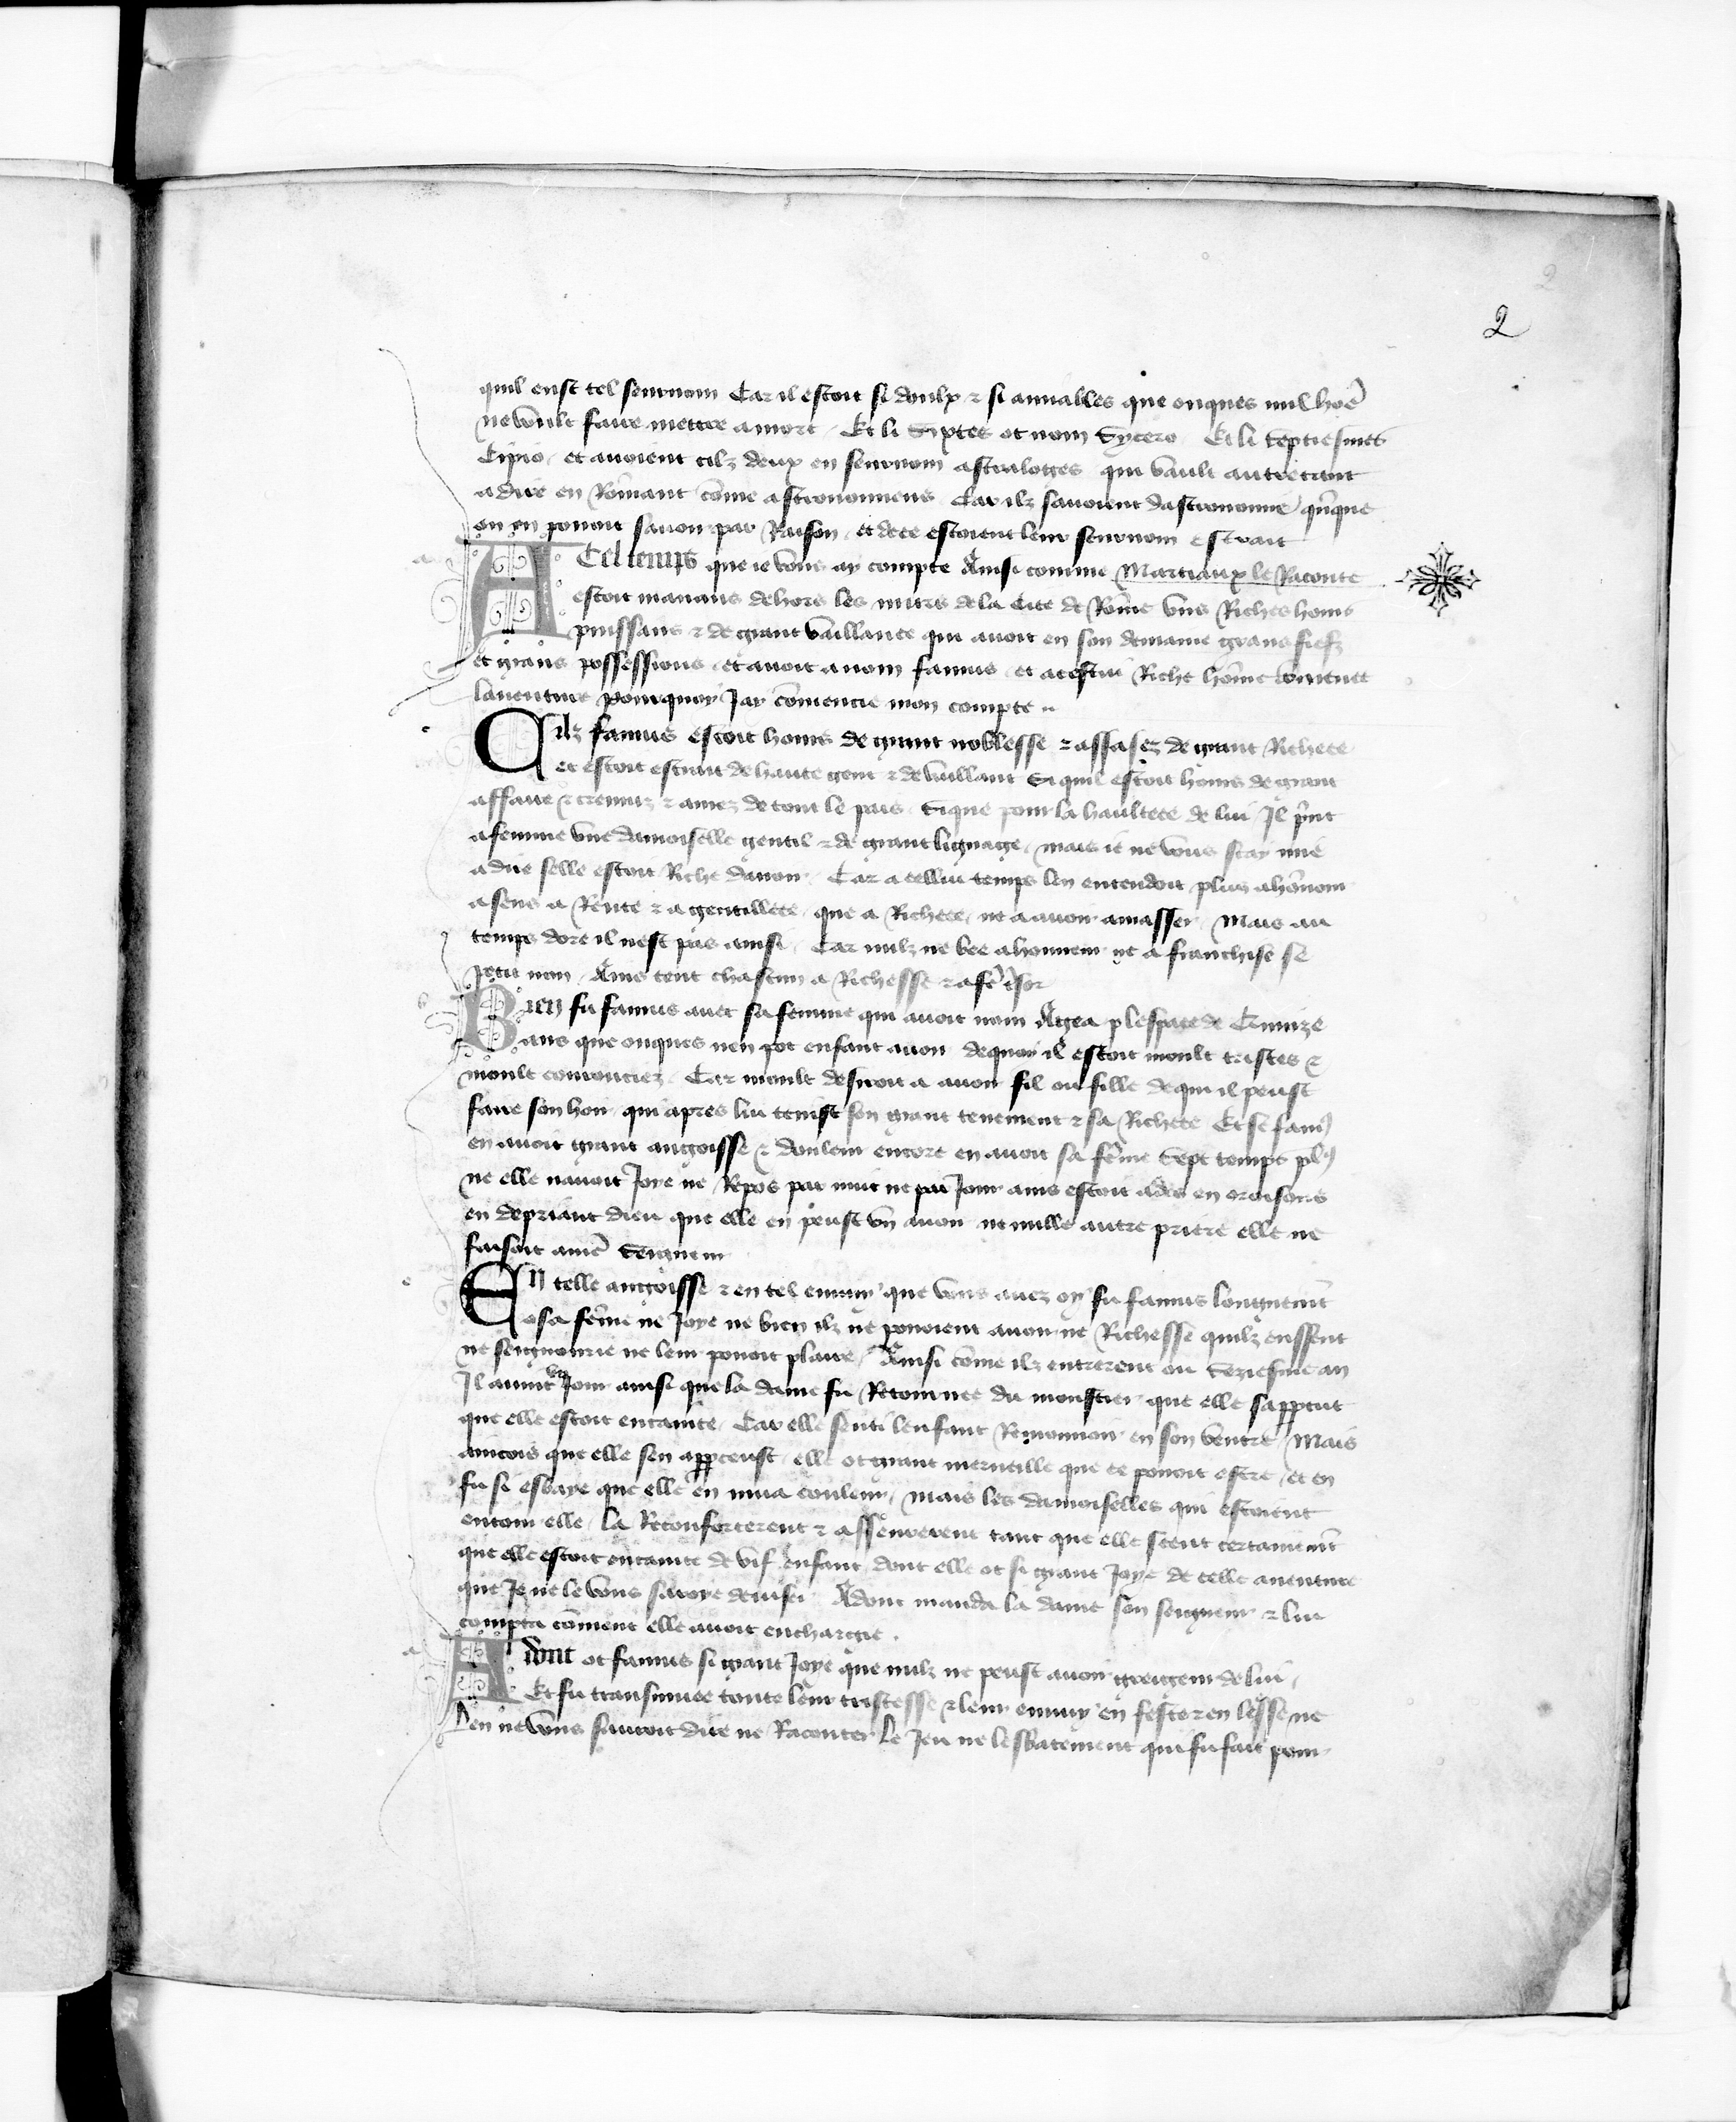 2
quil eust tel seurnom Car il estoit si doulx & si amiables que onques nul hoē
ne voult faire mettre a mort Et li Sixtes ot nom Sycero Et li Septiesmes
Cipio et auoient cilz deux en seurnom astraloges qui vault autretant
a dire en Romant cōme astronomiens Car ilz sauoient dastronomie qnque
on en pouoit sauoir par Raison et de ce estoient leur seurnom estrait
A Cel temps que ie vous ay compte Ainsi comme Martiaux le Raconte
estoit manans dehors les murs de la Cite de Rōme vns Riches homs
puissans & de grant vaillance qui auoit en son demaine grans fiefz
et grans possessions et auoit a nom fanus et a cestui Riche hōme
lauenture pourquoy Jay cōmencie mon compte
Cilz fanus estoit homs de grant noblesse & assasez de grant Richece
et estoit estrait de haute gent & de vaillant Si quil estoit homs de grant
affaire & cremuz & amez de tout le pais Si que pour la haultece de lui Il print
a femme vne damoiselle gentil & de grant lignage mais ie ne vous scay mie
a dire selle estoit Riche dauoir Car a cellui temps len entendoit plus a hōnour
a sens a Rente & a gentillece que a Richece ne a auoir amasser Mais au
temps dore il nest pas ainsi Car nulz ne bee a honneur ne a franchise se
petit non Ains tent chascun a Richesse
Bien fu fanus auec sa femme qui auoit nom Agea p lespace de Quinze
ans que onques nen pot enfant auoir dequoy il estoit moult tristes &
moult courouciez Car moult desiroit a auoir fil ou fille de qui il peust
faire son hoir qui apres lui tenist son grant tenement & sa Richece Et se fanus
en auoit grant angoisse & douleur encore en auoit sa fēme Sept temps plus
ne elle nauoit Joye ne Repos par nuit ne par Jour ains estoit ades en oroisons
en depriant dieu que elle en peust vn auoir ne nulle autre priere elle ne
faisoit a nrē Seigneur
En telle angoisse & en tel ennuy que vous auez oy fu fanus longuemēt
o sa fēme ne Joye ne bien ilz ne pouoient auoir ne Richesse quilz eussent
ne seignourie ne leur pouoit plaire Ainsi cōme ilz entrerent ou Seziesme an
Il auint vn Jour ainsi que la dame fu Retournee du moustier que elle sapperceut
que elle estoit encainte Car elle senti lenfant Remouuoir en son ventre Mais
aincois que elle sen apperceust elle ot grant merueille que ce pouoit estre et en
fu si esbaye que elle en mua couleur mais les damoiselles qui estoient
entour elle la Reconforterent & assenerent tant que elle sceut certainemēt
que elle estoit encainte de vif enfant dont elle ot si grant Joye de celle auenture
que Je ne le vous saroye deuiser Adonc manda la dame son seigneur & lui
compta cōment elle auoit enchargie
Adonc ot fanus si grant Joye que nulz ne peust auoir greigneur de lui
Et fu transmuee toute leur tristesse & leur ennuy en feste & en lesse ne
len ne vous sauroit dire ne Raconter le Jeu ne lesbatement qui fu fait pour